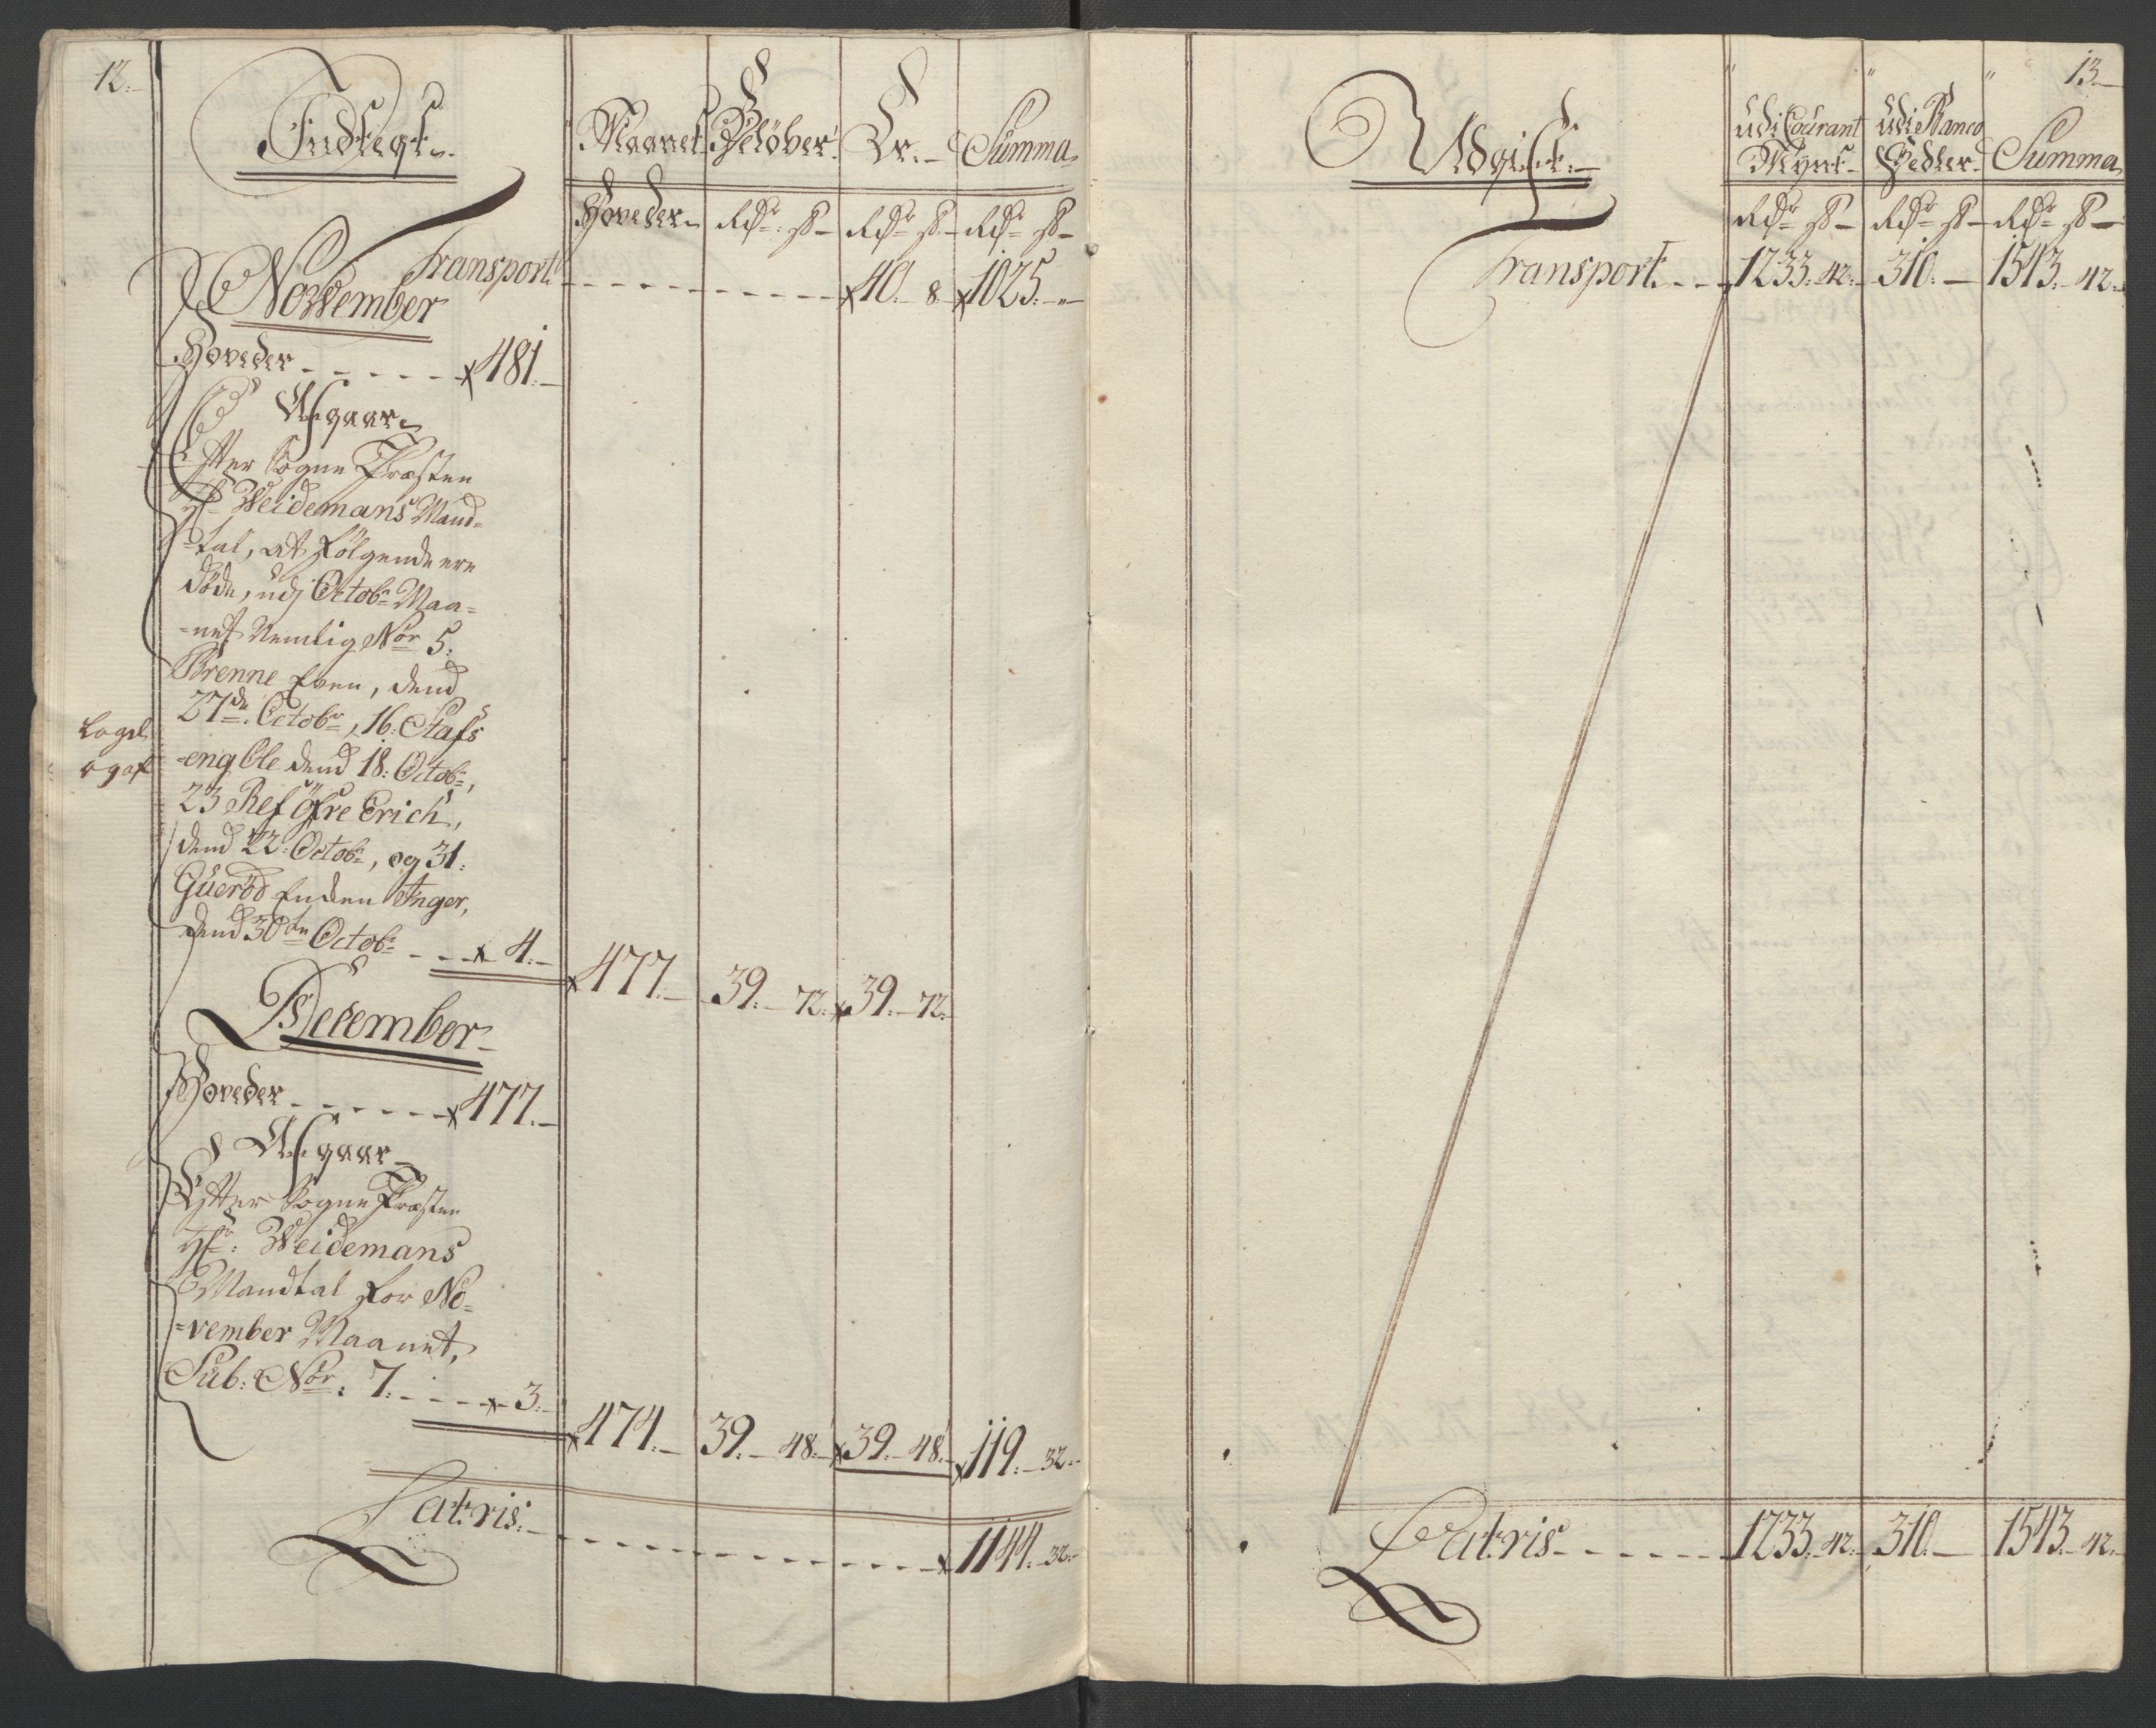 12.
Indtegt.
Maanet Beløber. Er. Summa
Hoveder Rdr ß Rdr ß Rdr ß
Transport 40. 8 1025.
November
Hoveder 481.
Afgaar
Efter Sogne Præsten
Hr Weidemans Mand=
=tal, at følgende ere
døde, udj Octobr Maa=
=net Nemlig Nor 5.
Brenne Even, dend
27de Octobr, 16. Stafs
eng Ole dend 18. Octobr,
23 Ref Øfre Erich,
dend 22. Octobr, og 31.
Guerød Enden Inger,
dend 30te Octobr 4. 477. 39. 72. 39. 72.
December
Hoveder 477.
Afgaar
Efter Sogne Præsten
Hr: Weidemans
Mandtal for No=
=vember Maanet,
Sub: Nor: 7. 3. 474. 39. 48. 39. 48. 119. 32.
Latris. 1144. 32.
13.
Udgift.
udi Courant Mynt udi Banco Sedler Summa
Rdr ß Rdr ß Rdr ß
Transport 1233. 42. 310. 1543. 42.
Latris 1233. 42. 310. 1543. 42.